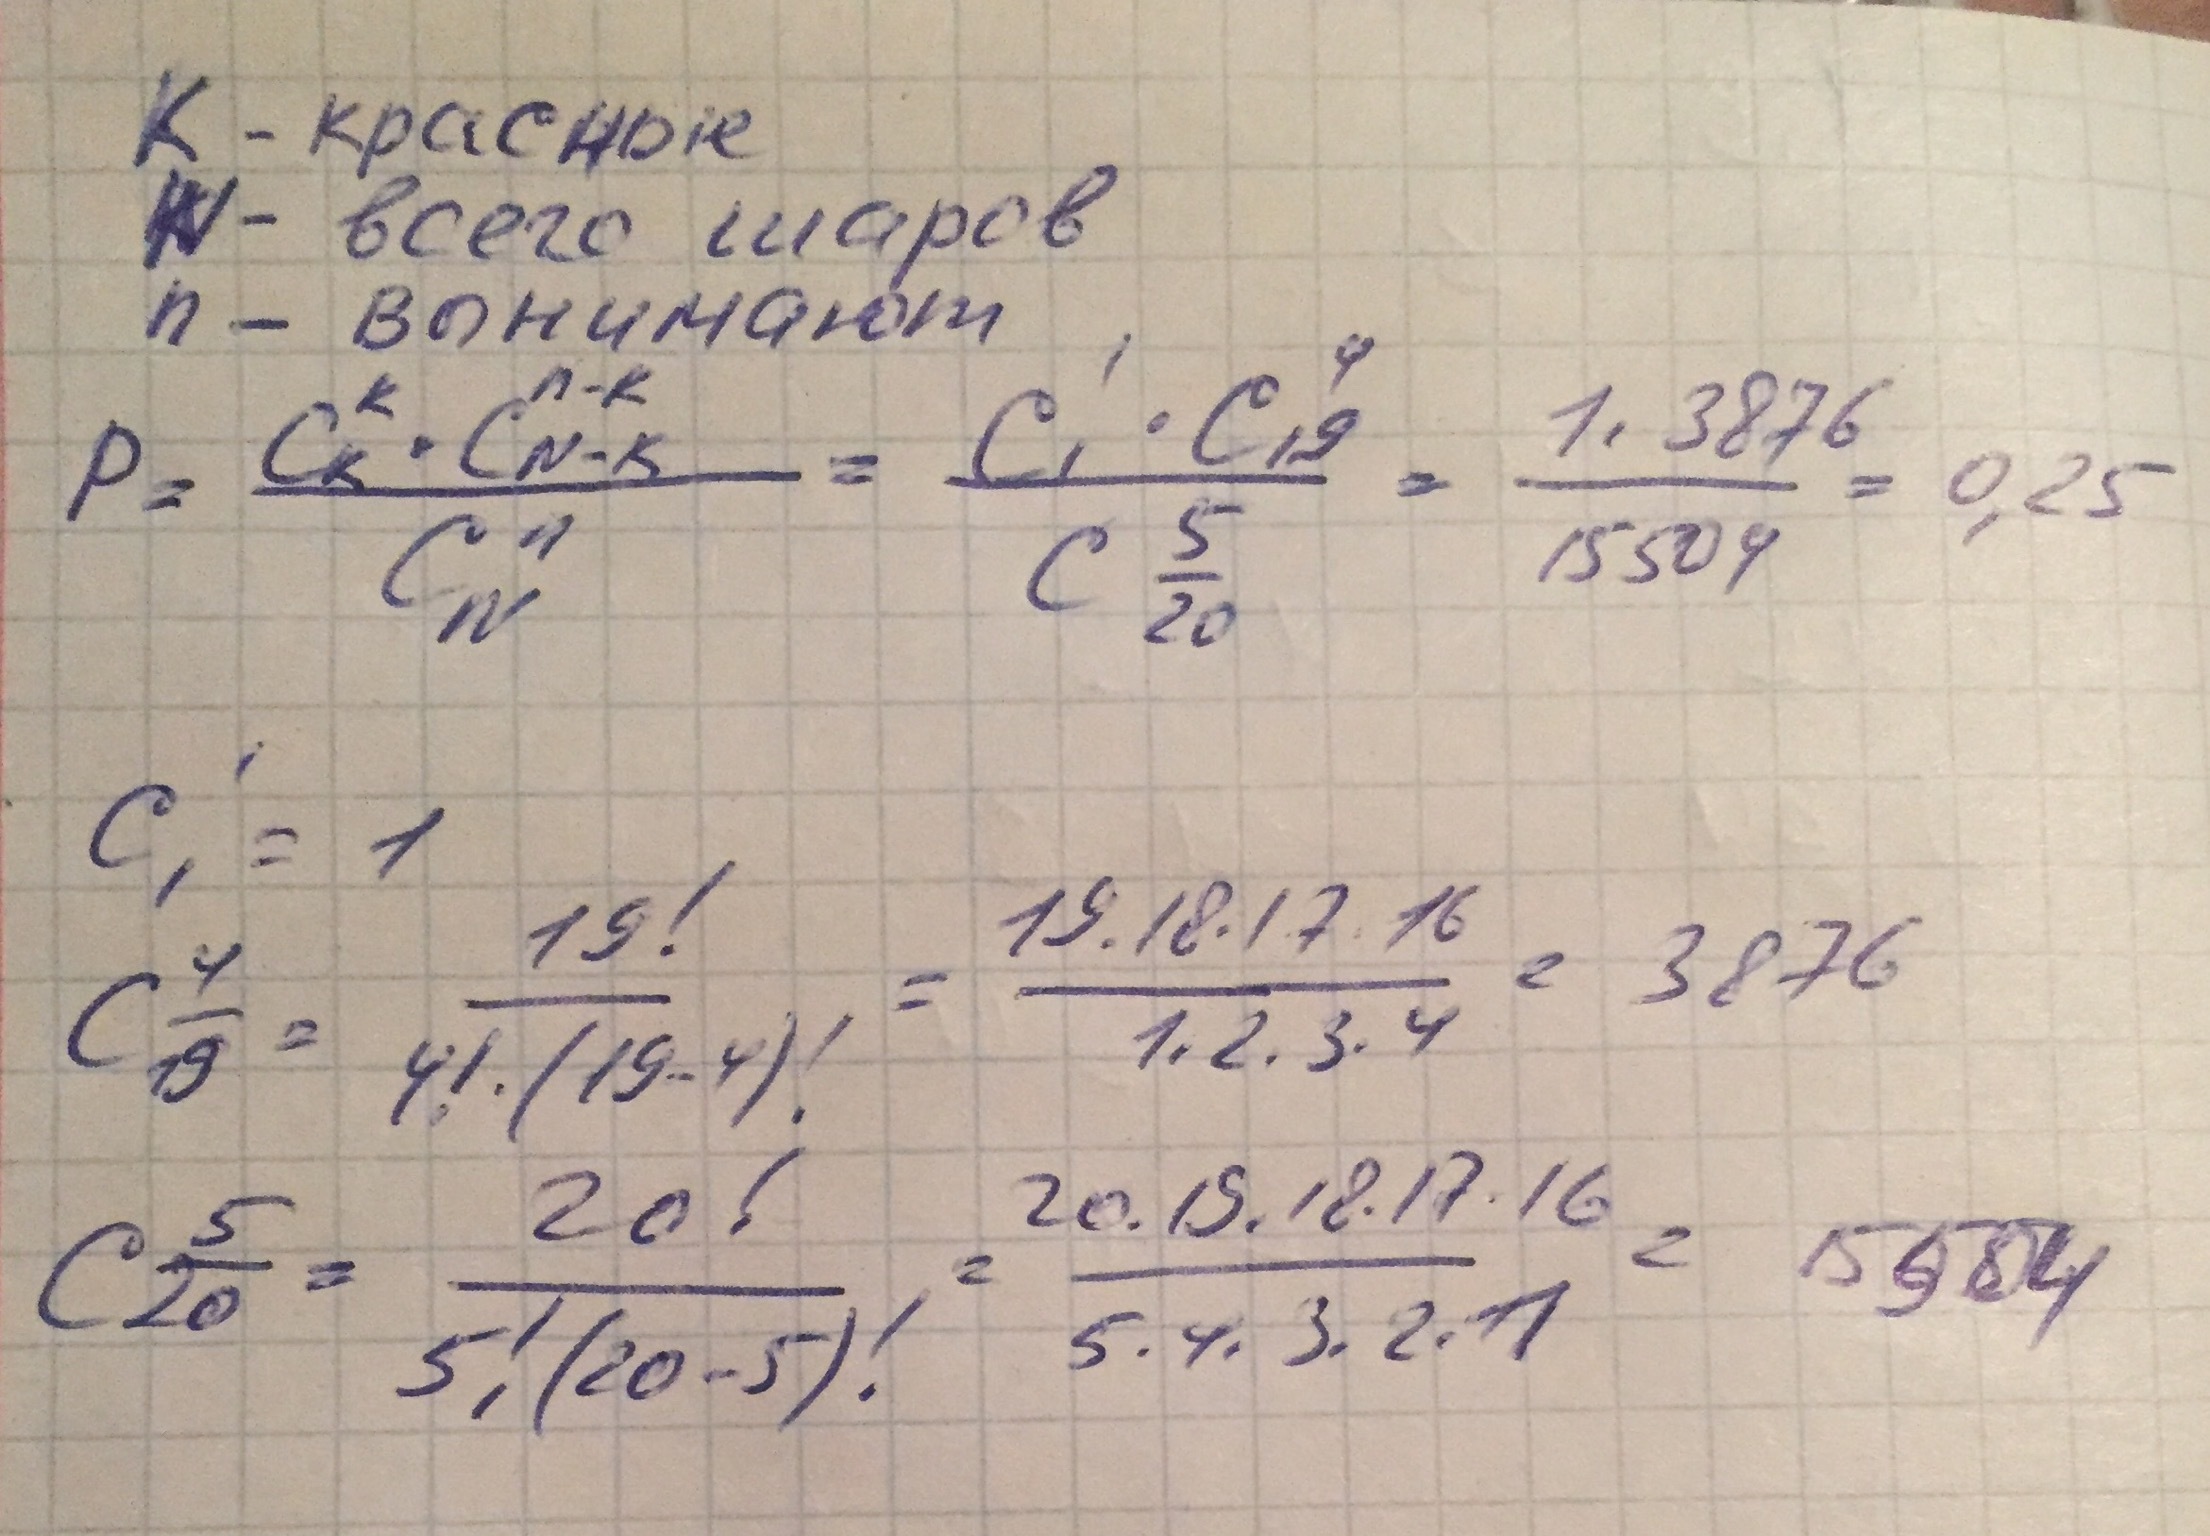 К - красные
N - всего шаров
n - вынимают
P = (C_K^K · C_{N-K}^{n-K}) / C_N^n = (C_1^1 · C_19^4) / C 5/20 = (1. 3876) / 15504 = 0,25
C_1^1 = 1
C 4/19 = 19! / 4!·(19-4)! = 19.18.17.16 / 1.2.3.4 = 3876
C 5/20 = 20! / 5!(20-5)! = 20.19.18.17.16 / 5.4.3.2.1 = 15504